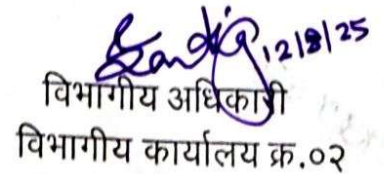 12/8/25
विभागीय अधिकारी
विभागीय कार्यालय क्र.०२